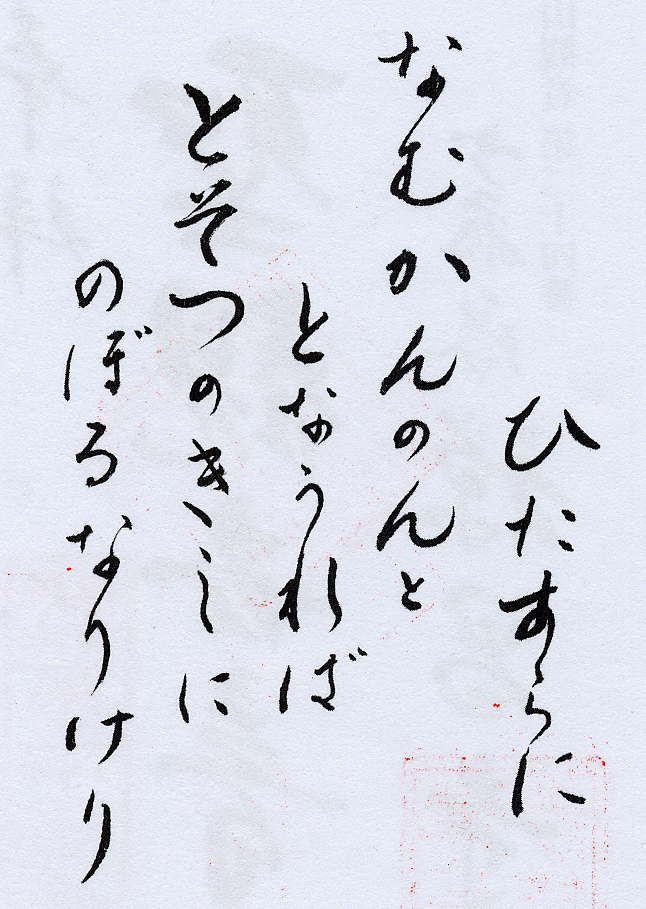 ひたすらに
なむかんのんと
となうれば
とそつのきしに
のぼるなりけり